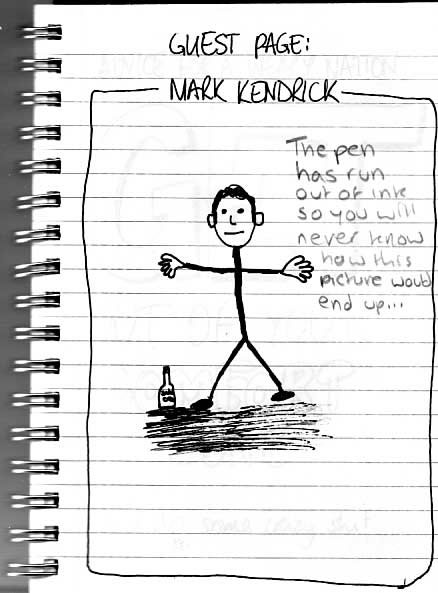 GUEST PAGE:
MARK KENDRICK
The pen
has run
out of ink
so you will
never know
how this
picture would
end up...
some crazy shit